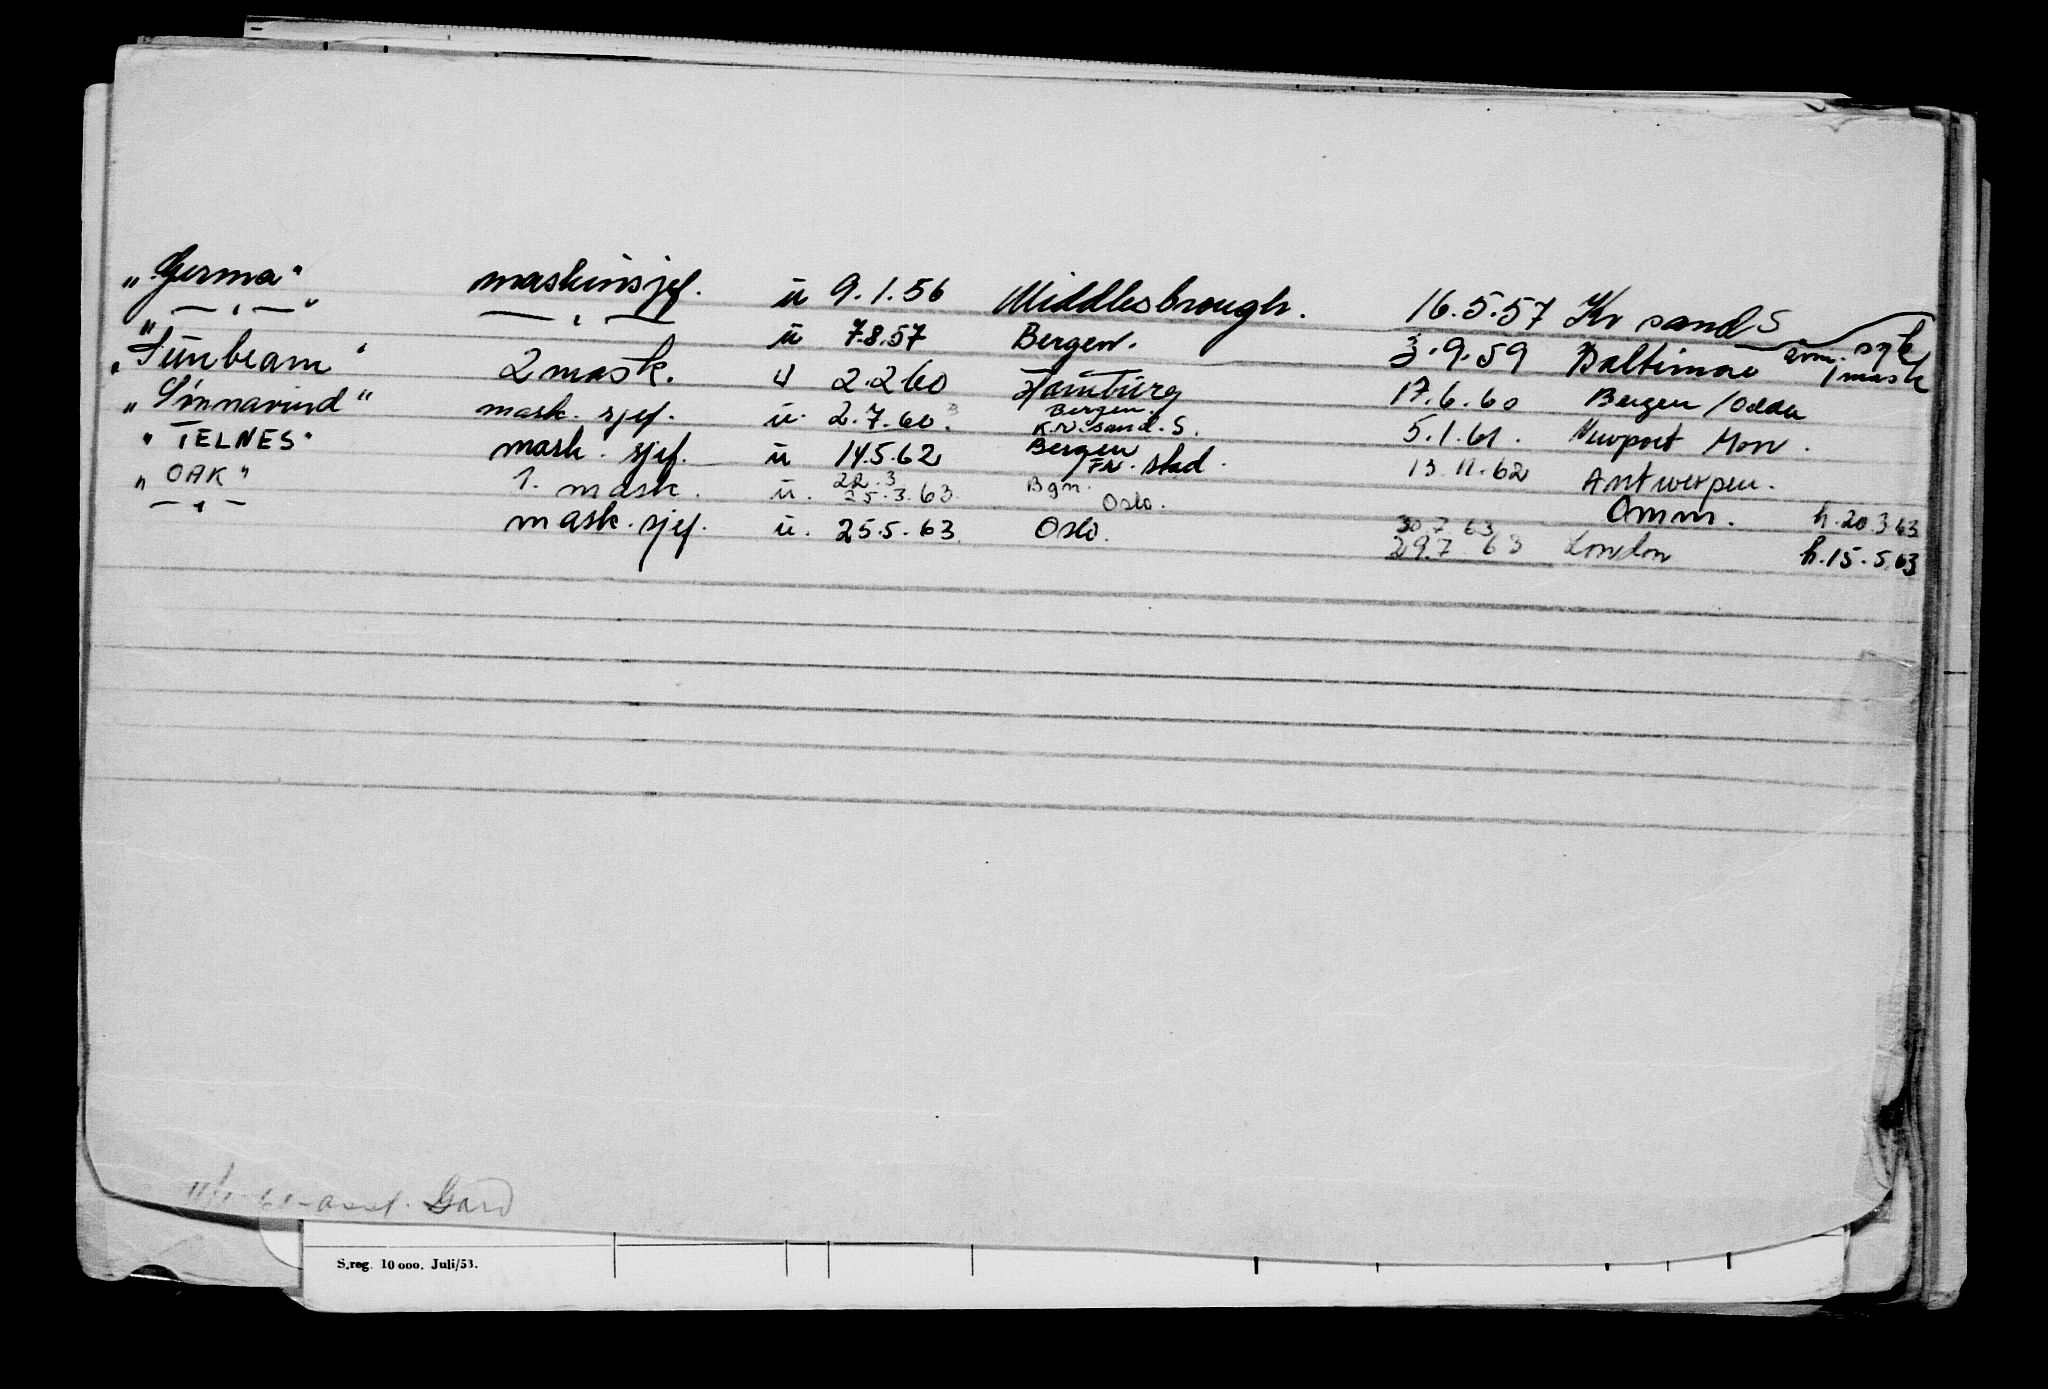 „Germa" maskinsjef. ü 9.1.56 Middlesbrough. 16.5.57 Kr sand S syk
— „ — " — „ — ü 7.8.57 Bergen. 3.9.59 Baltimore avm. 1 mask
„Sunbeam" 2 mask. u 2.2.60 Hamburg 17.6.60 Bergen/Odda
„Sinnavind" mask. sjef. ü. 2.7.60. Bergen. K.r. sand. S. 5.1.61. Newport Mon.
„TELNES" mask. sjef. ü 14.5.62 Bergen/Fr. stad. 13.11.62 Antwerpen.
„OAK" 1. mask. ü. 22.3 25.3.63. Bgn. Oslo. Omm. h.20.3.63
— „ — mask. sjef. ü. 25.5.63. Oslo. 30.7.63 29.7.63 London h.15.5.63
S.reg. 10 000. Juli/53.